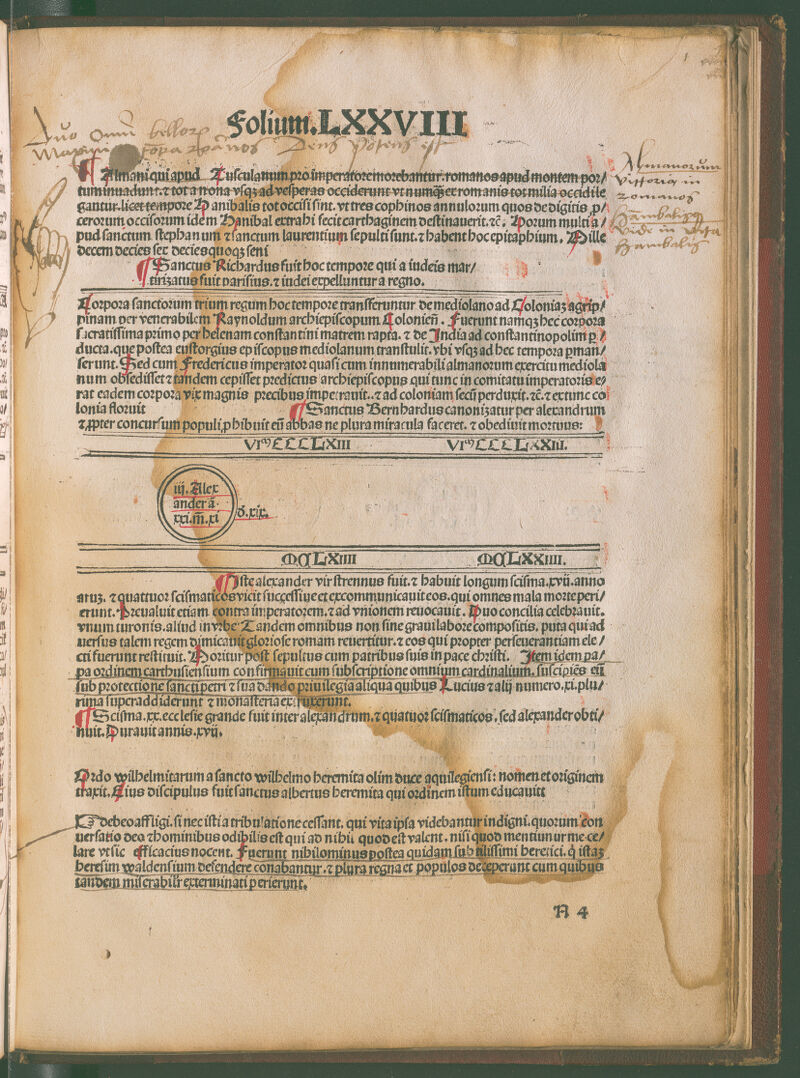 Folium.LXXVIII
Duo
Almani qui apud Tusculanum pro imperatore morebantur. romanos apud montem por/
tum inuadunt. ⁊ tot a nona vsqꝫ ad vesperas occiderunt vt numqꝫ ex romanis tot milia occidile
gantur. licet tempore Hanibalis tot occisi sint. vt tres cophinos annulorum quos de digitis p/
cerorum occisorum idem Hanibal extrahi fecit carthaginem destinauerit. ⁊c̄. Horum multi a/
pud sanctum stephanum ⁊ sanctum laurentium sepulti sunt. ⁊ habent hoc epitaphium. Mille
decem decies sex deciesquoqꝫ seni
Almanorum
Victoria in
romanos
Hambalis
vide in vita
Hambalis
¶ Sanctus Richardus fuit hoc tempore qui a iudeis mar/
tirizatus fuit parisius. ⁊ iudei expelluntur a regno.
Corpora sanctorum trium regum hoc tempore transferuntur de mediolano ad Coloniaꝫ agrip/
pinam per venerabilem Raynoldum archiepiscopum Colonieñ. Fuerunt namqꝫ hec corpora
sacratissima primo per helenam constantini matrem rapta. ⁊ de India ad constantinopolim p̱/
ducta. que postea eustorgius episcopus mediolanum transtulit. vbi vsqꝫ ad hec tempora pman/
serunt. Sed cum Fredericus imperator quasi cum innumerabili almanorum exercitu mediola
num obsedisset ⁊ tandem cepisset predictus archiepiscopus qui tunc in comitatu imperatoris e/
rat eadem corpora vix magnis precibus impetrauit. ⁊ ad coloniam secū perduxit. ⁊c̄. ⁊ ex tunc co
lonia floruit ¶ Sanctus Bernhardus canonizatur per alexandrum
⁊ ꝓpter concursum populi ꝓhibuit eū abbas ne plura miracula faceret. ⁊ obediuit mortuus:
VIᵐCCCLXIII VIᵐCCCLXXIII.
iij. Alex
ander ā.
xxi. m̄. xi
d. xix.
MCLXIIII MCLXXIIII.
¶ Iste alexander vir strennus fuit. ⁊ habuit longum scisma. xvii. anno
aruꝫ. ⁊ quattuor scismaticos vicit successiue et excommunicauit eos. qui omnes mala morte peri/
erunt. Preualuit etiam contra imperatorem. ⁊ ad vnionem reuocauit. Duo concilia celebrauit.
vnum turonis. aliud in vrbe Tandem omnibus non sine graui labore compositis. puta qui ad
uersus talem regem dimicauit gloriose romam reuertitur. ⁊ eos qui propter perseuerantiam ele/
cti fuerunt restituit. Moritur post sepultus cum patribus suis in pace christi. Item idem pa/
pa ordinem carthusiensium confirmauit cum subscriptione omnium cardinalium. suscipiēs eū
sub protectione sancti petri ⁊ sua dando priuilegia aliqua quibus Lucius ⁊ alij numero. xi. plu/
rima superaddiderunt ⁊ monasteria extruxerunt.
¶ Scisma. xx. ecclesie grande fuit inter alexandrum. ⁊ quatuor scismaticos. sed alexander obti/
nuit. Durauit annis. xvii.
Ordo wilhelmitarum a sancto wilhelmo heremita olim duce aquilegiensi: nomen et originem
traxit. Eius discipulus fuit sanctus albertus heremita qui ordinem istum educauitt
O debeo affligi. si nec isti a tribulatione cessant. qui vita ipsa videbantur indigni. quorum con
uersatio deo ⁊ hominibus odibilis est qui ad nihil quod est valent. nisi quod mentiuntur me ce/
lare vt sic efficacius nocent. Fuerunt nihilominus postea quidam subtilissimi heretici. q̄ istaꝫ
heresim waldensium defendere conabantur. ⁊ plura regna et populos deceperunt cum quibus
tandem miserabilr̄ exterminati perierunt.
N 4